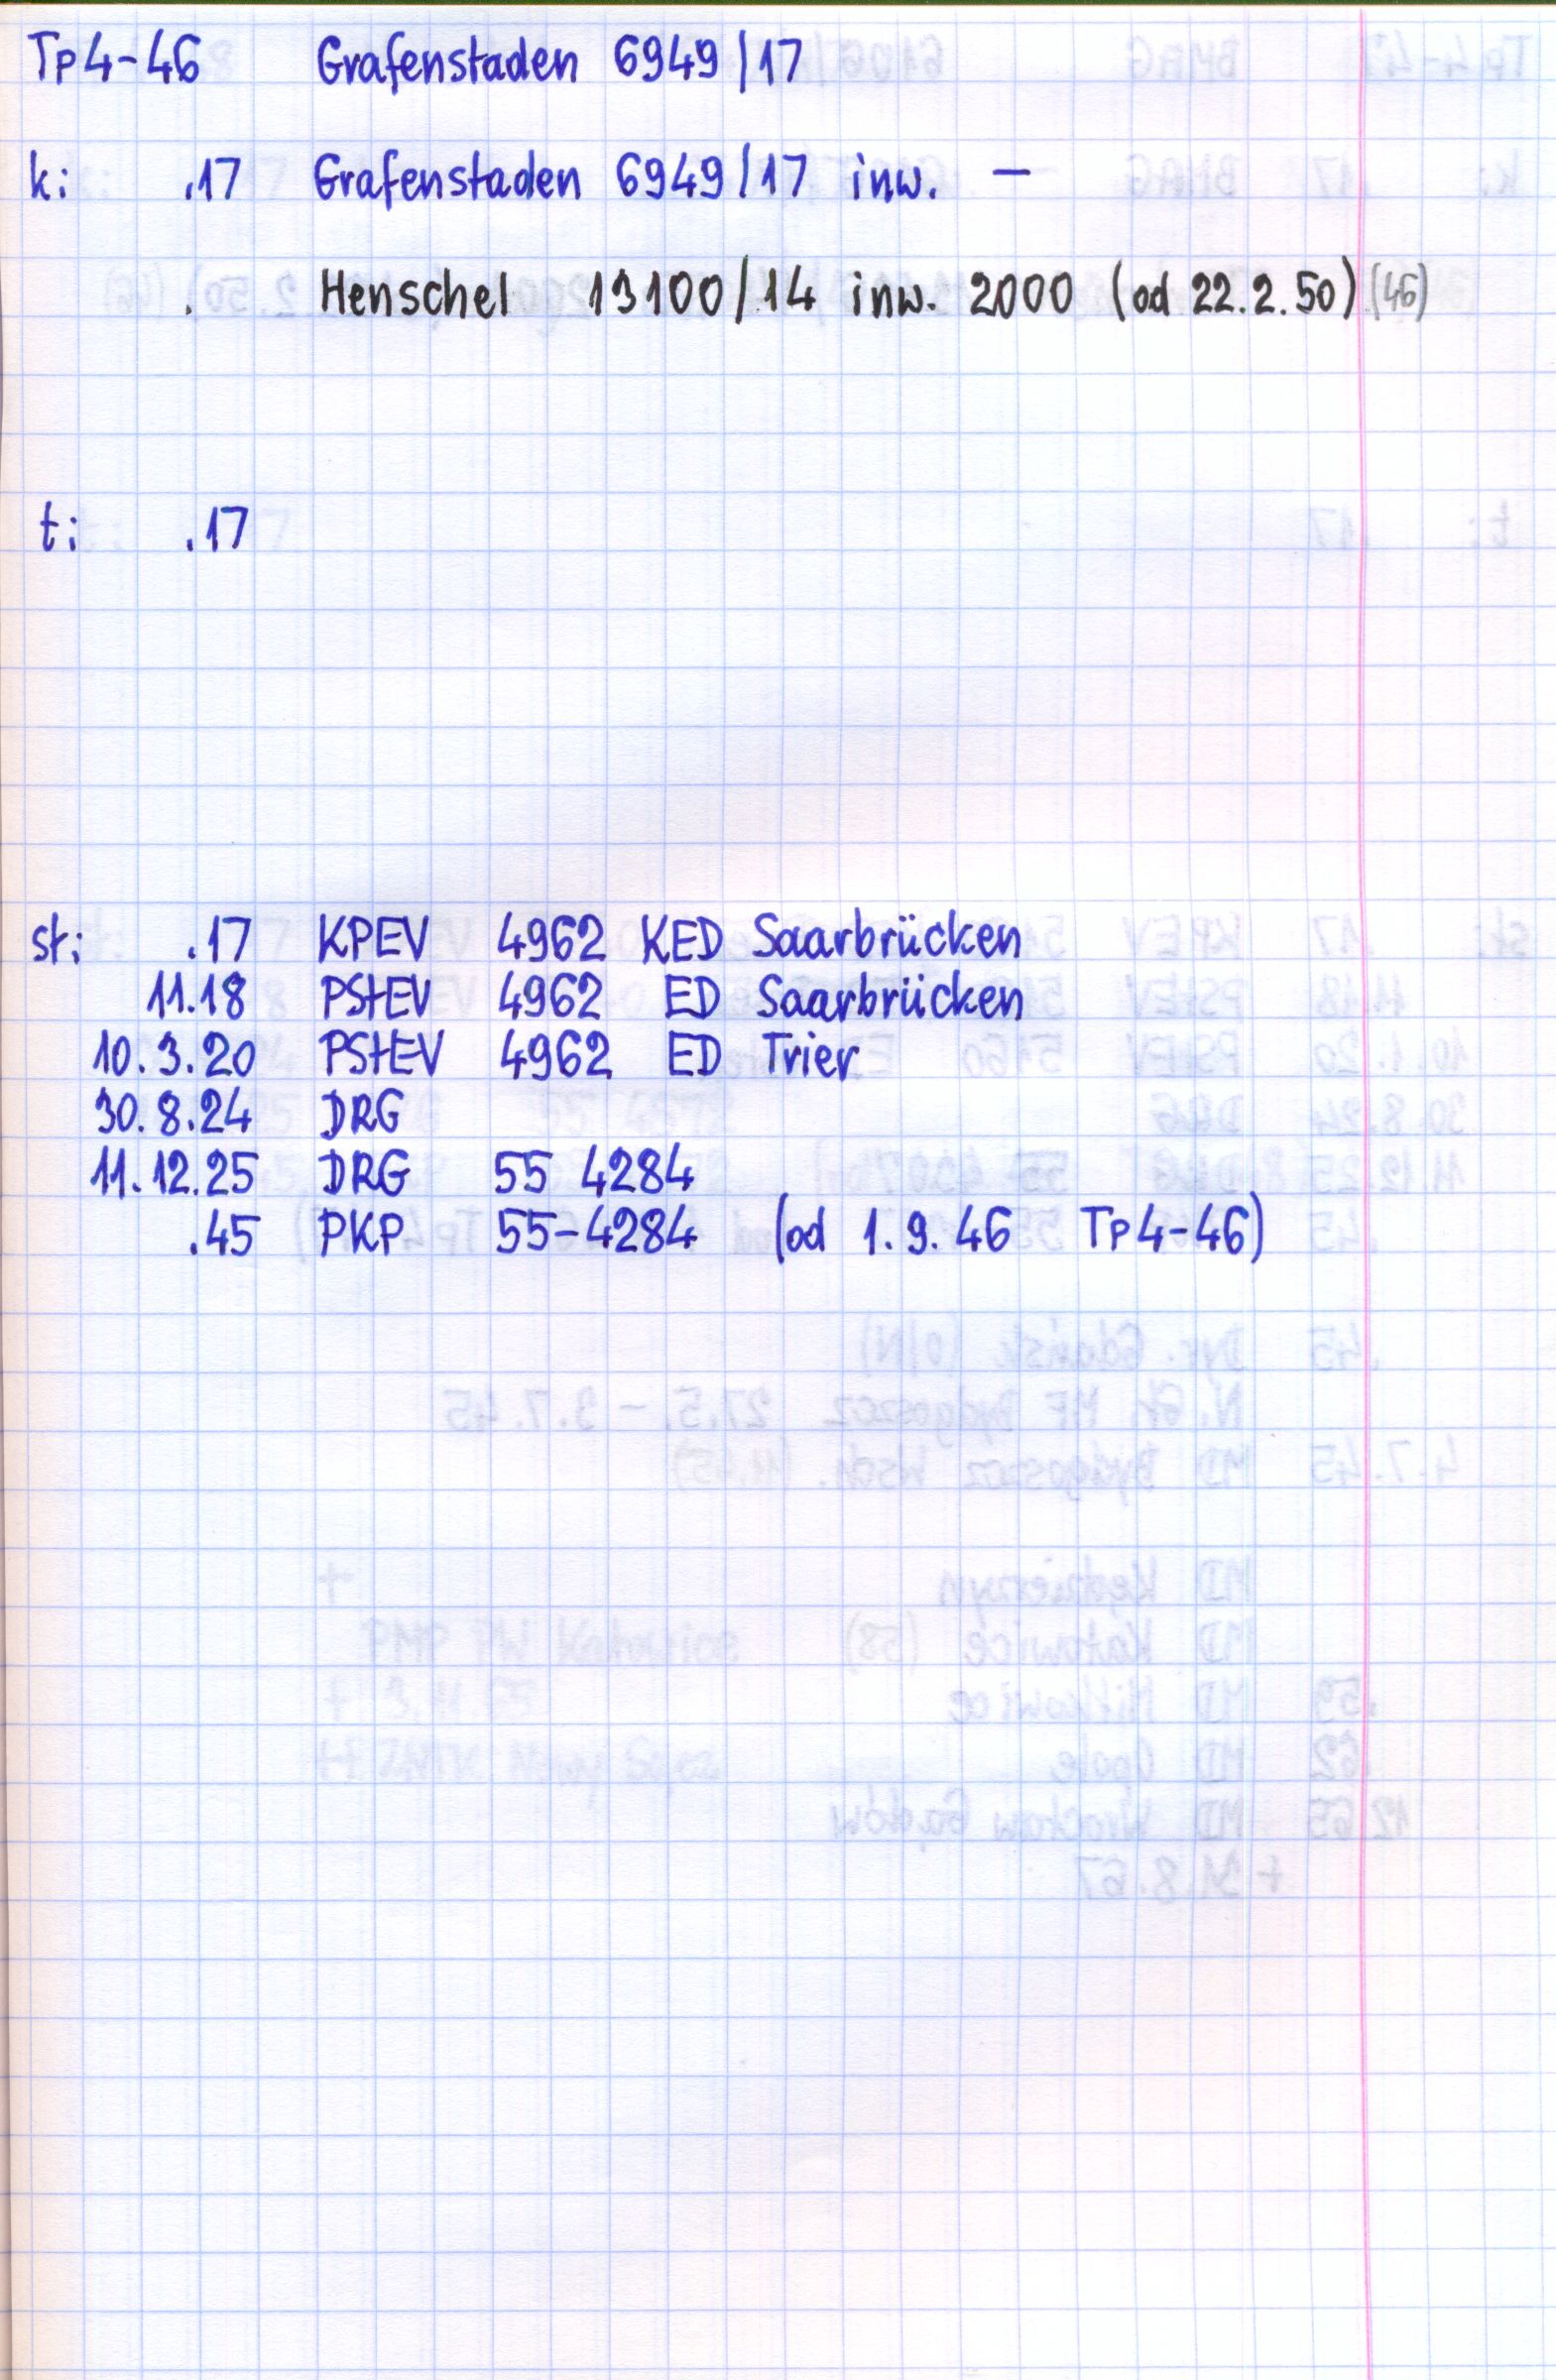 Tp4-46 Grafenstaden 6949/17
k: .17 Grafenstaden 6949/17 inw. —
. Henschel 13100/14 inw. 2000 (od 22.2.50) (46)
t: .17
st: .17 KPEV 4962 KED Saarbrücken
11.18 PStEV 4962 ED Saarbrücken
10.3.20 PStEV 4962 ED Trier
30.8.24 DRG
11.12.25 DRG 55 4284
.45 PKP 55-4284 (od 1.9.46 Tp4-46)